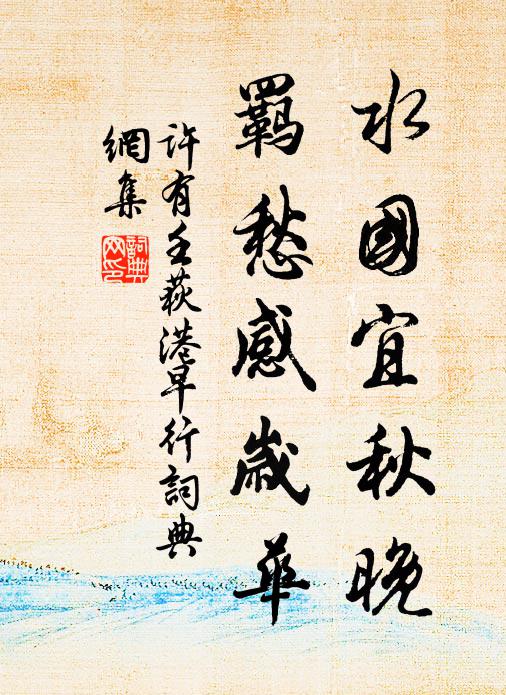 水國宜秋晚
羇愁感歲華
許有壬荻港早行詞典
網集
詞典
网印